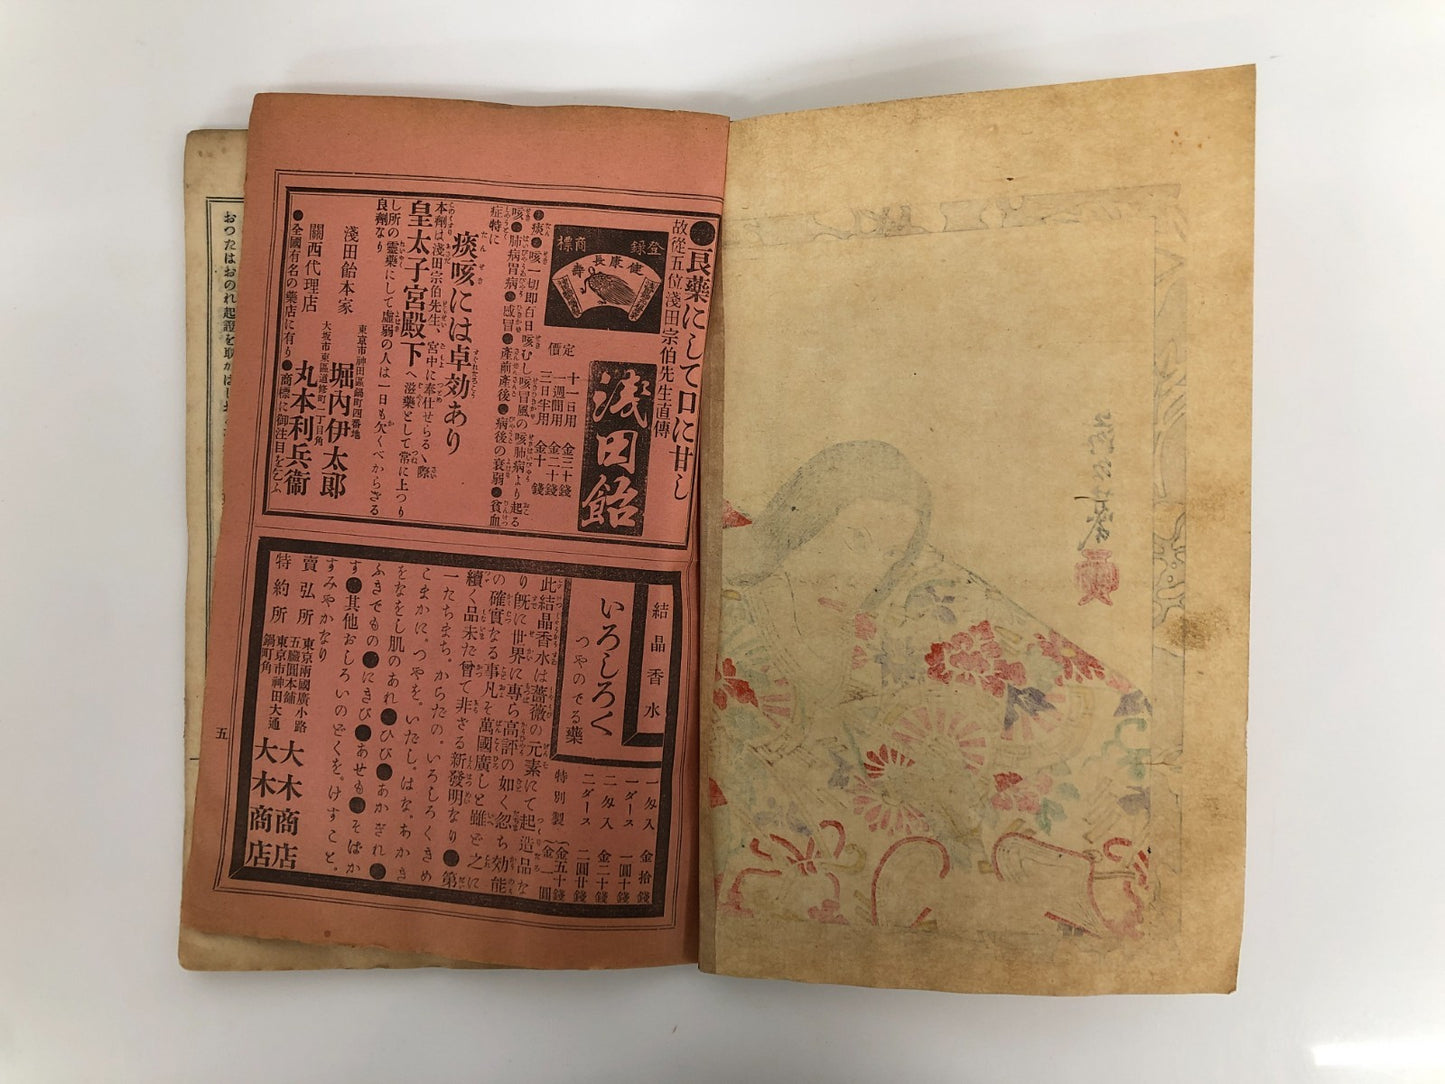 ●良藥にして口に甘し
故從五位淺田宗伯先生直傳
登錄商標
健康長壽
淺田飴
定價
十一日用 金三十錢
一週間用 金二十錢
三日半用 金十錢
●痰●咳一切即百日咳むし咳冒風の咳肺病より起る
咳●肺病胃病●感冒●產前產後●病後の衰弱●貧血
症特に
痰咳には卓効あり
本劑は淺田宗伯先生、宮中に奉仕せらるゝ際
皇太子宮殿下へ滋藥として常に上つり
し所の靈藥にして虛弱の人は一日も欠くべからざる
良劑なり
淺田飴本家
東京市神田區鍋町四番地
堀內伊太郎
關西代理店
大坂市東區道修町一丁目角
丸本利兵衞
●全國有名の藥店に有り●商標に御注目を乞ふ
結晶香水
いろしろく
つやのでる藥
一匁入 金拾錢
一ダース 一圓十錢
二匁入 金二十錢
二ダース 二圓廿錢
特別製 金五十錢
金一圓
此結晶香水は薔薇の元素にて起造品な
り既に世界に專ら高評の如く忽ち効能
の確實なる事凡そ萬國廣しと雖ども之に
續く品未た曾て非ざる新發明なり●第
一たちまち。からだの。いろしろくきめ
こまかに。つやを。いたし。はな。あかき
をなをし肌のあれ●ひび●あかぎれ●
ふきでもの●にきび●あせも●そばか
す●其他おしろいのどくを。けすこと。
すみやかなり
賣弘所
東京兩國廣小路
五臟圓本舖
大木商店
特約所
東京市神田大通
鍋町角
大木商店
五
おつたはおのれ起證を取かはし